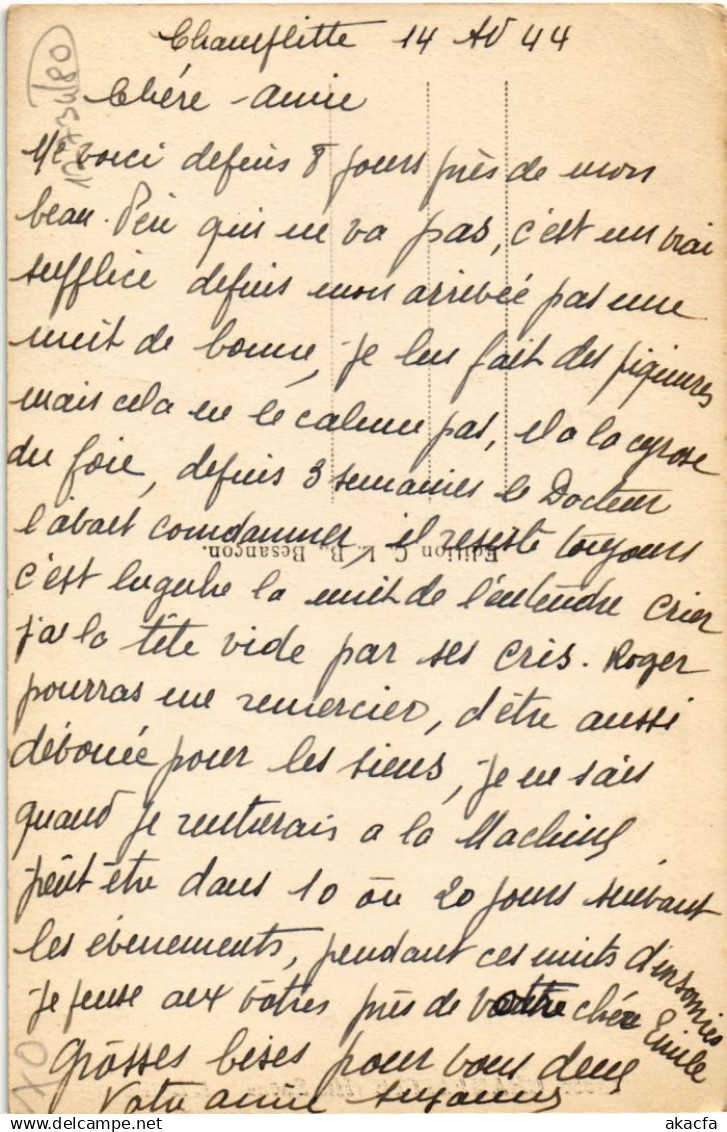 Champlitte 14 AV 44
Chére - Amie
Me voici depuis 8 jours près de mon
beau. Pére qui ne va pas, c'est un vrai
supplice depuis mon arrivée pas une
nuit de bonne, je lui fait des piqures
mais cela ne le calme pas, il a la cyrose
du foie, depuis 3 semaines le Docteur
l'avait comdamner il resiste toujours
Edition C. L. B., Besançon.
c'est lugubre la nuit de l'entendre crier
j'ai la tête vide par ses cris. Roger
pourras me remercier, d'être aussi
dévouée pour les siens, je ne sais
quand je rentrerais a la Machine
pêut être dans 10 ou 20 jours suivant
les évenements, pendant ces nuits d'insomnies
je pense aux vôtres près de votre cher Emile
Grosses bises pour vous deux
Votre amie Suzanne
12734/80
10
akacfa